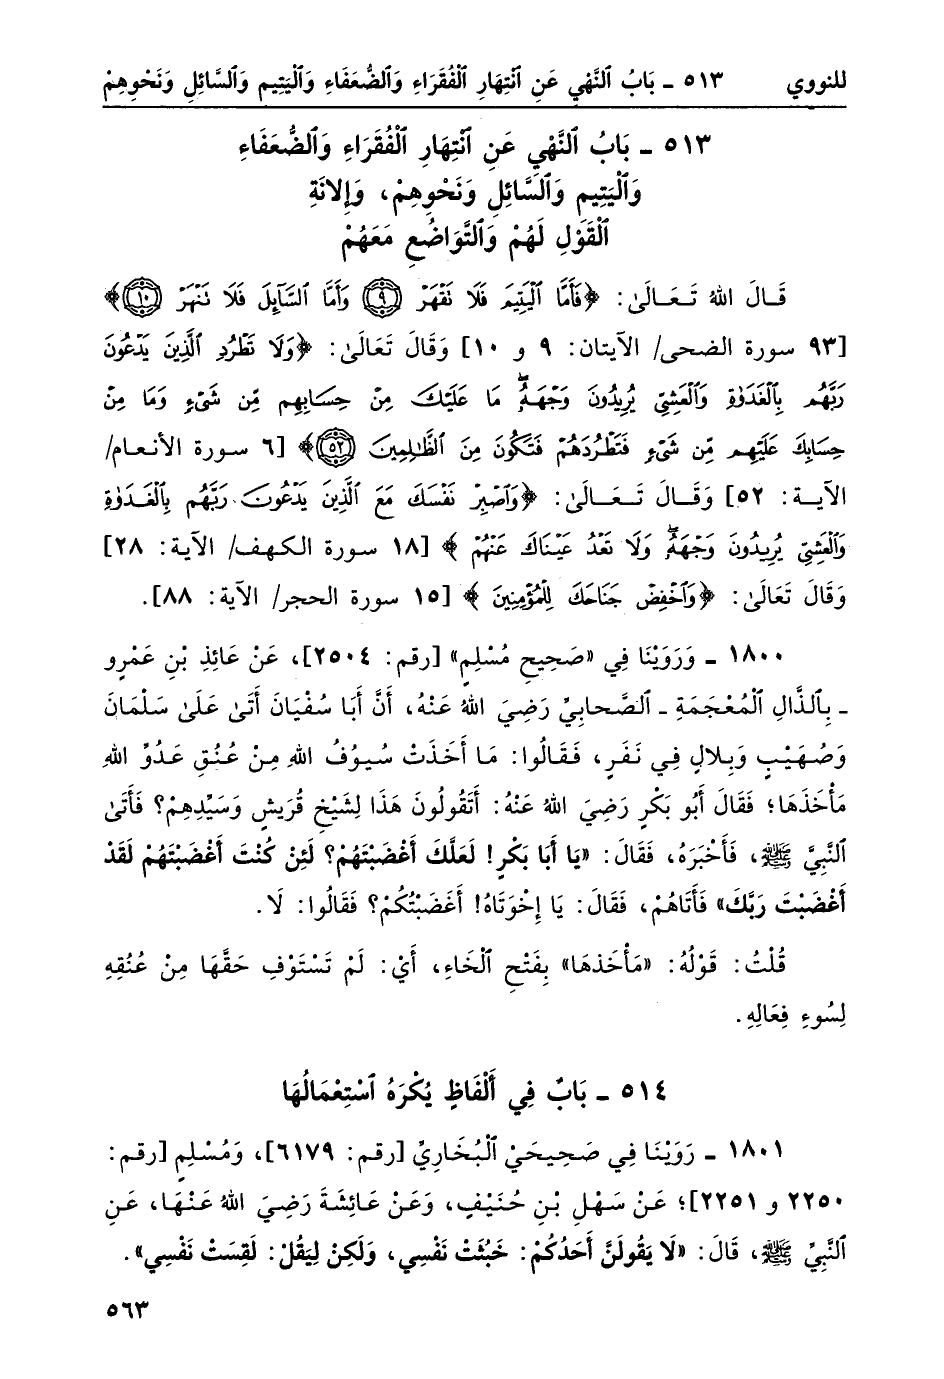 للنووي ٥١٣ ـ بَابُ ٱلنَّهْيِ عَنِ ٱنْتِهَارِ ٱلْفُقَرَاءِ وَٱلضُّعَفَاءِ وَٱلْيَتِيمِ وَٱلسَّائِلِ وَنَحْوِهِمْ
٥١٣ ـ بَابُ ٱلنَّهْيِ عَنِ ٱنْتِهَارِ ٱلْفُقَرَاءِ وَٱلضُّعَفَاءِ
وَٱلْيَتِيمِ وَٱلسَّائِلِ وَنَحْوِهِمْ، وَإِلانَةِ
ٱلْقَوْلِ لَهُمْ وَٱلتَّوَاضُعِ مَعَهُمْ
قَالَ اللهُ تَعَالَىٰ: ﴿فَأَمَّا ٱلْيَتِيمَ فَلَا نَقْهَرْ ۝٩ وَأَمَّا ٱلسَّآئِلَ فَلَا نَنْهَرْ ۝١٠﴾
[٩٣ سورة الضحى/ الآيتان: ٩ و ١٠] وَقَالَ تَعَالَىٰ: ﴿وَلَا تَطْرُدِ ٱلَّذِينَ يَدْعُونَ
رَبَّهُم بِٱلْغَدَوٰةِ وَٱلْعَشِيِّ يُرِيدُونَ وَجْهَهُۥۖ مَا عَلَيْكَ مِنْ حِسَابِهِم مِّن شَىْءٍ وَمَا مِنْ
حِسَابِكَ عَلَيْهِم مِّن شَىْءٍ فَتَطْرُدَهُمْ فَتَكُونَ مِنَ ٱلظَّٰلِمِينَ ۝٥٢﴾ [٦ سورة الأنعام/
الآية: ٥٢] وَقَالَ تَعَالَىٰ: ﴿وَٱصْبِرْ نَفْسَكَ مَعَ ٱلَّذِينَ يَدْعُونَ رَبَّهُم بِٱلْغَدَوٰةِ
وَٱلْعَشِيِّ يُرِيدُونَ وَجْهَهُۥۖ وَلَا تَعْدُ عَيْنَاكَ عَنْهُمْ﴾ [١٨ سورة الكهف/ الآية: ٢٨]
وَقَالَ تَعَالَىٰ: ﴿وَٱخْفِضْ جَنَاحَكَ لِلْمُؤْمِنِينَ﴾ [١٥ سورة الحجر/ الآية: ٨٨].
١٨٠٠ ـ وَرَوَيْنَا فِي «صَحِيحِ مُسْلِمٍ» [رقم: ٢٥٠٤]، عَنْ عَائِذِ بْنِ عَمْرٍو
ـ بِٱلذَّالِ ٱلْمُعْجَمَةِ ـ ٱلصَّحابِيِّ رَضِيَ اللهُ عَنْهُ، أَنَّ أَبَا سُفْيَانَ أَتَى عَلَىٰ سَلْمَانَ
وَصُهَيْبٍ وَبِلالٍ فِي نَفَرٍ، فَقَالُوا: مَا أَخَذَتْ سُيوُفُ اللهِ مِنْ عُنُقِ عَدُوِّ اللهِ
مَأْخَذَهَا؛ فَقَالَ أَبُو بَكْرٍ رَضِيَ اللهُ عَنْهُ: أَتَقُولُونَ هَذَا لِشَيْخِ قُرَيشٍ وَسَيِّدِهِمْ؟ فَأَتىٰ
ٱلنَّبِيَّ ﷺ، فَأَخْبَرَهُ، فَقَالَ: «يَا أَبَا بَكْرٍ! لَعَلَّكَ أَغْضَبْتَهُمْ؟ لَئِنْ كُنْتَ أَغْضَبْتَهُمْ لَقَدْ
أَغْضَبْتَ رَبَّكَ» فَأَتَاهُمْ، فَقَالَ: يَا إِخْوَتَاهُ! أَغَضَبْتُكُمْ؟ فَقَالُوا: لَا.
قُلْتُ: قَوْلُهُ: «مَأْخَذهَا» بِفَتْحِ ٱلْخَاءِ، أَيْ: لَمْ تَسْتَوْفِ حَقَّهَا مِنْ عُنُقِهِ
لِسُوءِ فِعَالِهِ.
٥١٤ ـ بَابٌ فِي أَلْفَاظٍ يُكْرَهُ ٱسْتِعْمَالُهَا
١٨٠١ ـ رَوَيْنَا فِي صَحِيحَيْ ٱلْبُخَارِيِّ [رقم: ٦١٧٩]، وَمُسْلِمٍ [رقم:
٢٢٥٠ و ٢٢٥١]؛ عَنْ سَهْلِ بْنِ حُنَيْفٍ، وَعَنْ عَائِشَةَ رَضِيَ اللهُ عَنْهَا، عَنِ
ٱلنَّبِيِّ ﷺ، قَالَ: «لَا يَقُولَنَّ أَحَدُكُمْ: خَبُثَتْ نَفْسِي، وَلَكِنْ لِيَقُلْ: لَقِسَتْ نَفْسِي».
٥٦٣